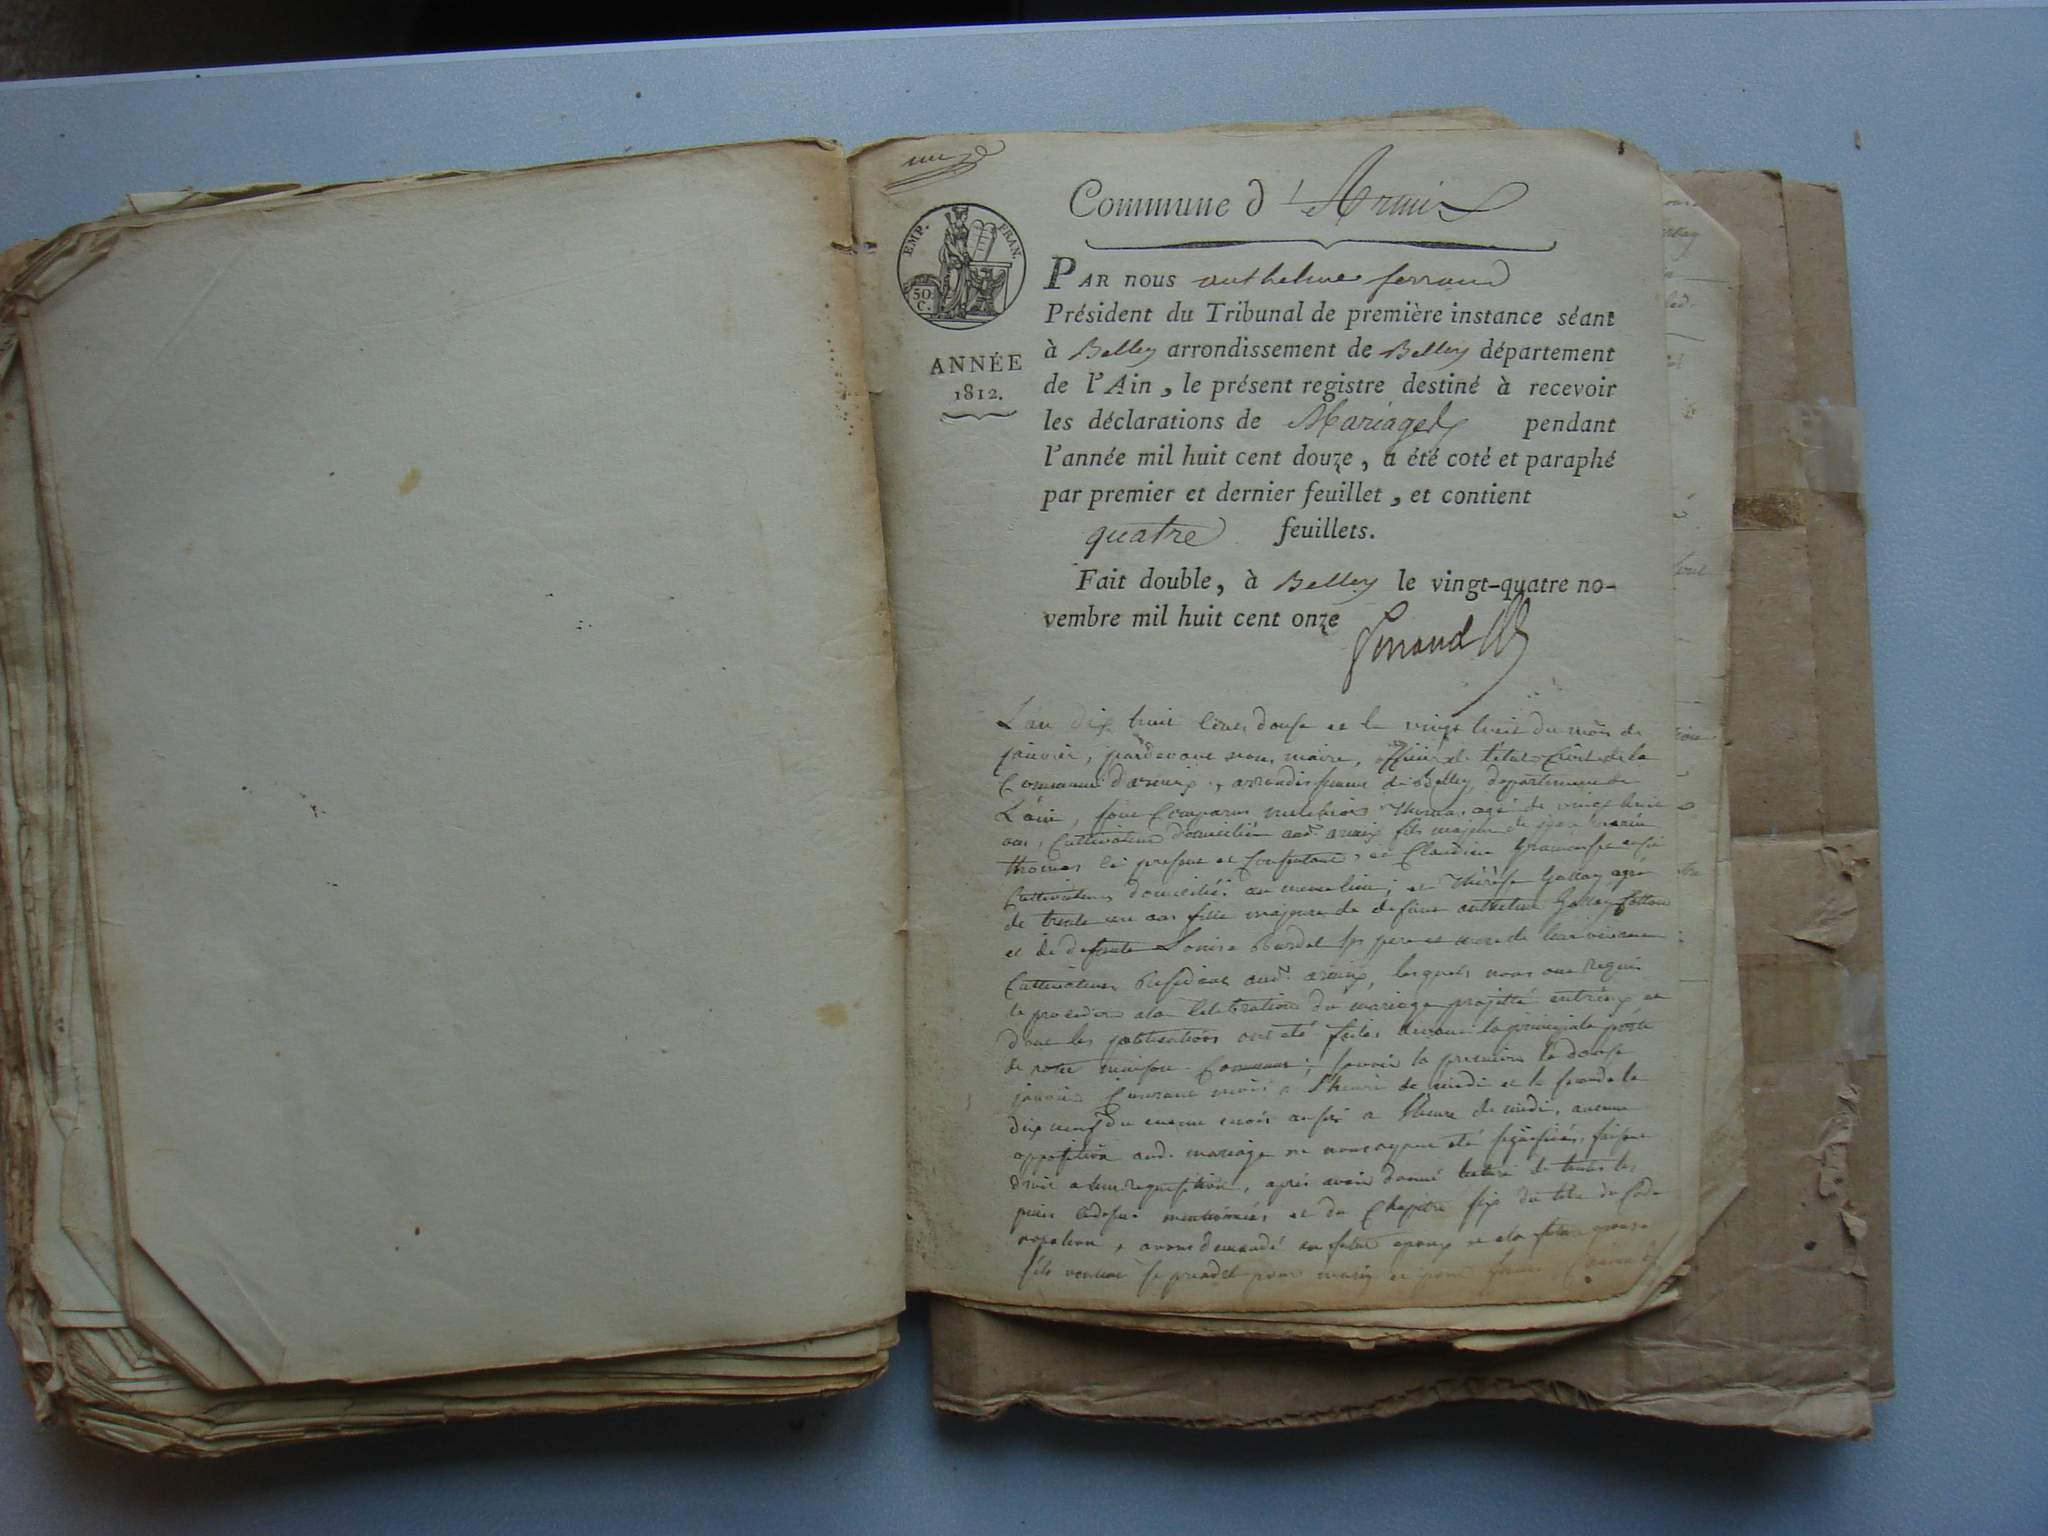 Commune d'Armix
EMP. FRAN.
50 C.
PAR NOUS anthelme ferrand
Président du Tribunal de première instance séant
à Belley arrondissement de Belley département
ANNÉE
1812.
de l'Ain, le présent registre destiné à recevoir
les déclarations de Mariages pendant
l'année mil huit cent douze, a été coté et paraphé
par premier et dernier feuillet, et contient
quatre feuillets.
Fait double, à Belley le vingt-quatre no-
vembre mil huit cent onze
Ferrand
L'an dix huit cent douse et le vingt huit du mois de
janvier, pardevant nous maire, officier de l'état Civil de la
Commune d'armix, arrondissement de Belley, departement de
L'ain, sont Comparus melchior Thomas agé de vingt huit
ans, Cultivateur domicilié aud. armix fils majeur de
thomas ici present et Consentant, et Claudine
Cultivateurs domiciliés au meme lieu; et Thérèse Gallay agée
de trente un ans fille majeure de defunt anthelme Gallay
et de defunte Louise pere et mere de leur vivant
Cultivateurs Residant aud. armix, lesquels nous ont requis
de proceder a la Celebration du mariage projetté entr'eux et
dont les publications ont été faites devant la principale porte
de notre maison Commune; savoir la premiere le douse
janvier Courant mois a l'heure de midi et la seconde le
dix neuf du meme mois aussi a l'heure de midi, aucune
opposition aud. mariage ne nous ayant été signifiée, faisant
droit a leur requisition, après avoir donné lecture de toutes les
pieces cidessus mentionnées et du Chapitre six du titre du Code
napoleon, avons demandé au futur epoux et a la future epouse
s'ils veulent se prendre pour mary et pour femme